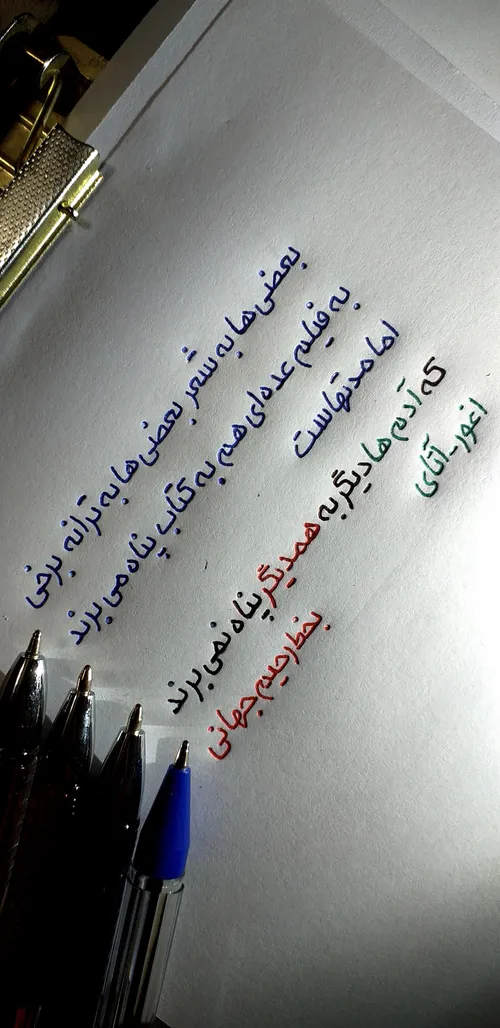 بعضی ها به شعر بعضی ها به ترانه برخی
به فیلم عده ای هم به کتاب پناه می برند
اما مدتهاست
که آدم ها دیگر به همدیگر پناه نمی برند
اغور_آتای
بخط رحیم جهانی